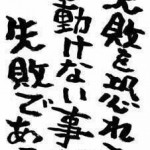 失敗を恐れ
動けない事
失敗であ